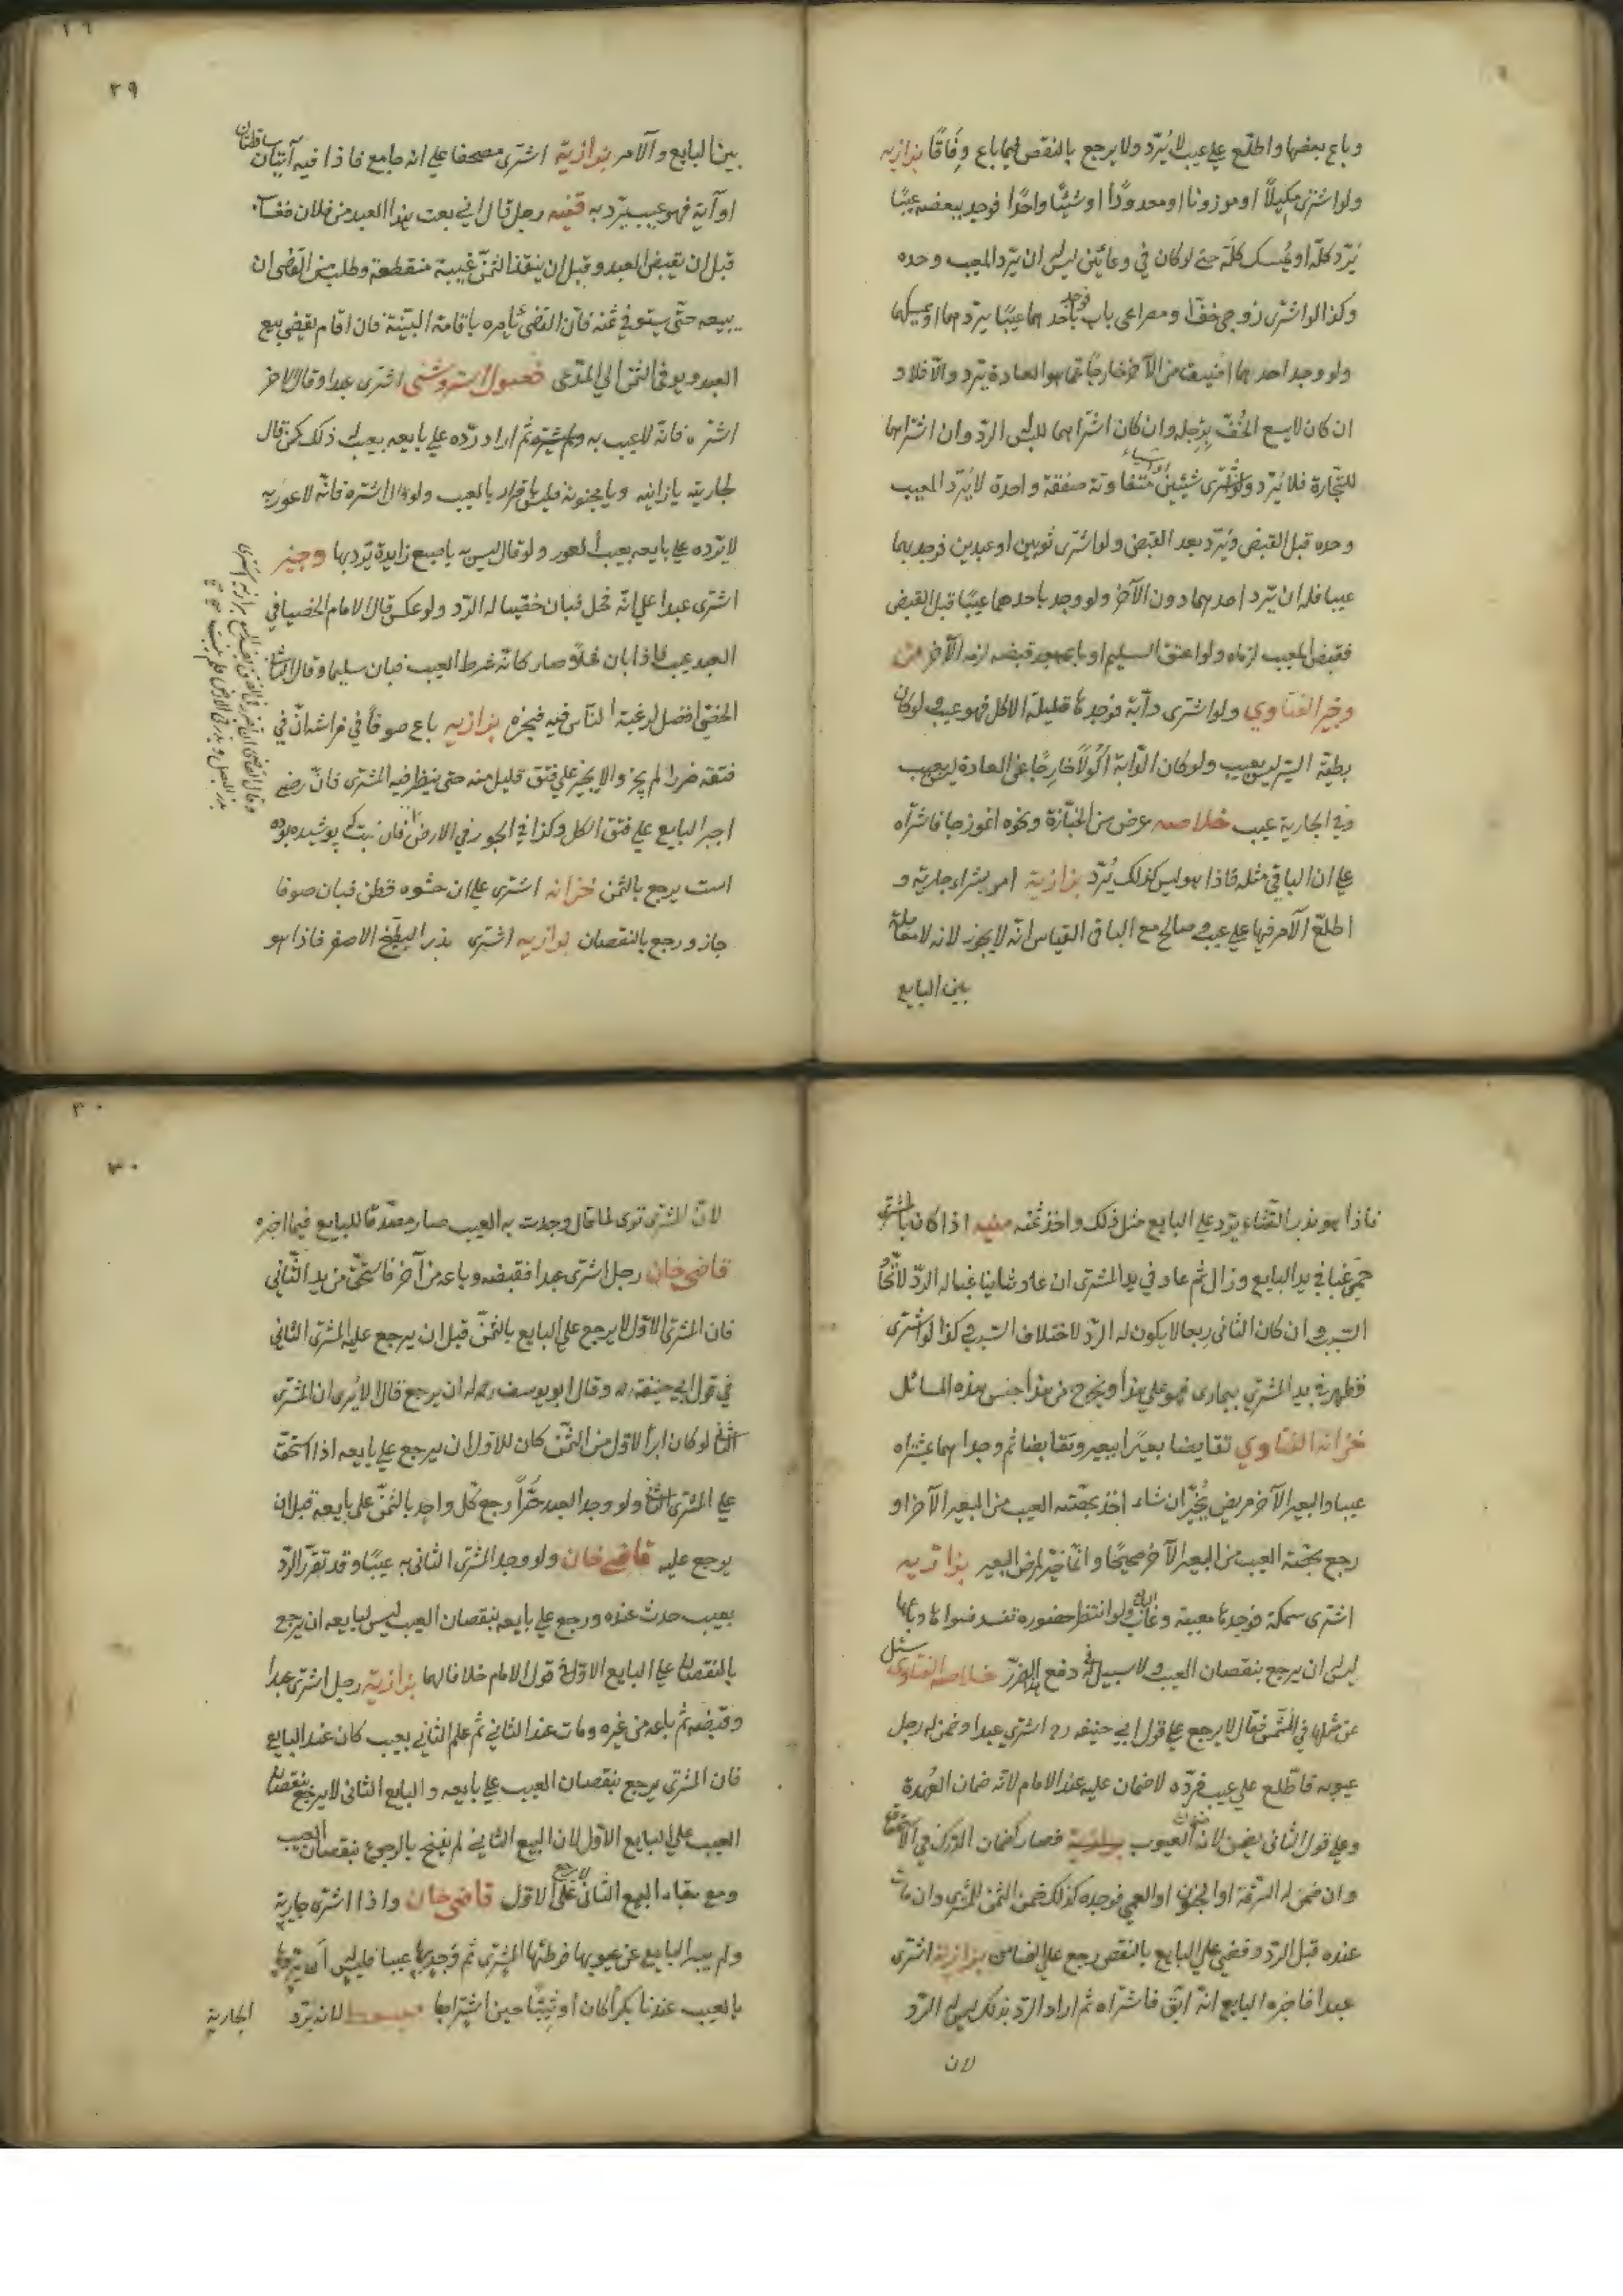 وباع بعضها واطلع على عيب لا يُردّ ولا يرجع بالنقص فيما باع وِفَاقًا بزازيه
ولو اشترى مكيلاً او موزونا او معدودًا او شيئًا واحدًا فوجد ببعضه عيبًا
يُردّ كلّه او يُمسك كلّه حتى لو كان في وعائين ليس له ان يردّ المعيب وحده
وكذا لو اشترى زوجي خفّ او مصراعى باب فوجد باحدهما عيبًا يردّهما او يمسكهما
ولو وجد احدهما اضيق من الآخر خارجًا عمّا هو العادة يردّ والّا فلا و
ان كان لا يسع الخُفّ بِرجله وان كان اشتراهما للبس الردّ وان اشتراهما
للتّجارة فلا يُردّ ولو اشترى شيئين او اشياء متفاوتة صفقة واحدة لا يُردّ المعيب
وحده قبل القبض ويُردّ بعد القبض ولو اشترى ثوبين او عبدين فوجد بهما
عيبا فله ان يردّ احدهما دون الآخر ولو وجد باحدهما عيبًا قبل القبض
فقبض المعيب لزماه ولو اعتق السليم او باعه بعد قبضه لزمه الآخر من
وجيز الفتاوي ولو اشترى دآبة فوجدها قليلة الاكل فهو عيب ولو كان
بطيئة السير ليس بعيب ولو كان الدّابة اكولًا خارجًا عن العادة ليس بعيب
وفي الجارية عيب خلاصه عرض من الخبّازة ونحوه انموزجا فاشتراه
على ان الباقي مثله فاذا هو ليس كذلك يُردّ بزازية امر بشراء جارية و
اطلع الآمر فيها على عيب وصالح مع البايع القياس انّه لا يجوز لانه لا معاملة
بين البايع
٢٩
بين البايع والآمر بزازية اشترى مصحفا على انه جامع فاذا فيه آيتان ساقطتان
او آية فهو عيب يردّ به قنيه رجل قال اني بعت هذا العبد من فلان فغاب
قبل ان يقبض العبد وقبل ان ينقد الثمن غيبة منقطعة وطلب من القضى ان
يبيعه حتّى يستوفي ثمنه فانّ القضى يأمره باقامة البيّنة فان اقام يقضى ببيع
العبد ويوفي الثمن الى المدّعى فصول استروشنى اشترى عبدا وقال لآخر
اشتره فانّه لا عيب به ولم يشتره ثم اراد ردّه على بايعه بعيب له ذلك كمن قال
لجاريته يا زانيه ويا مجنونة فليس باقرار بالعيب ولو قال اشتره فانّه لا عور به
لا يردّه على بايعه بعيب العور ولو قال ليس به باصبع زايدة يردّ بها وجيز
اشترى عبدا على انّه فحل فبان خصيا له الردّ ولو عكس قال الامام الخصيا في
العبد عيب فاذا بان فحلًا صار كانّه شرط العيب فبان سليما وقال الثاني
الخصى افضل لرغبة النّاس فيه فيخيره بزازيه باع صوفًا في فراش انّ في
فتقه ضررا لم يجز والا يجبر على فتق قليل منه حتى ينظر فيه المشترى فانّ رضى
اجبر البايع على فتق الكل وكذا في الجوز في الارض فان نبت كه پوشيده بوده
است يرجع بالثمن خزانه اشترى على ان حشوه قطن فبان صوفا
جاز ورجع بالنقصان بزازيه اشترى بذر البطّيخ الاصفر فاذا هو
٣٠
فاذا هو بذر القثّاء يردّ على البايع مثل ذلك واخذ ثمنه منيه اذا كان بالمشترى
حمّى غبا في يد البايع وزال ثم عاد في يد المشترى ان عاد ثانيا غبا له الردّ لاتّحاد
السبب وان كان الثاني ربعا لا يكون له الردّ لاختلاف السبب وكذا لو اشترى
فظهر في يد المشترى بيعارى فهو على هذا ويخرج من هذا جنس هذه المسائل
خزانة الفتاوي تقايضا بعيرًا ببعير وتقابضا ثم وجد احدهما بمشتراه
عيبا والبعير الآخر مريض يُخيّر ان شاء اخذ بحصّته العيب من البعير الآخر او
رجع بحصّة العيب من البعير الآخر صحيحًا وانّما خيّر لمرض البعير بزازيه
اشترى سمكة فوجدها معيبة وغاب البايع ولو انتظر حضوره تفسد فشواها وباعها
ليس له ان يرجع بنقصان العيب ولا سبيل له في دفع هذا الضرر خلاصة الفتاوى سئل
عن مثلها في المشمش فقال لا يرجع على قول ابي حنيفه رح اشترى عبدا وضمن له رجل
عيوبه فاطّلع على عيب فردّه لا ضمان عليه عند الامام لانّه ضمان العُهدة
وعلى قول الثانى يضمن لان ضمان العيوب فصار كضمان الدّرك في الاستحقاق
وان ضمن له السرقة او الجنون او العمى فوجده كذلك ضمن الثمن للمشترى وان مات
عنده قبل الردّ وقضى على البايع بالنقص رجع على الضامن بزازيه اشترى
عبدا فاخبره البايع انّه ابق فاشتراه ثم اراد الردّ بذلك ليس له الردّ
لان
٣٠
لانّ المشترى ترى لما قال وجدت به العيب صار مصدّقا للبايع فيما اخبره
قاضى خان رجل اشترى عبدا فقبضه وباعه من آخر فاستحقّ من يد الثّانى
فان المشترى الاوّل لا يرجع على البايع بالثمن قبل ان يرجع عليه المشترى الثانى
في قول ابي حنيفة ره وقال ابو يوسف ره له ان يرجع قال الا يُرى ان المشترى
الثانى لو كان ابرأ الاوّل من الثمّن كان للاوّل ان يرجع على بايعه اذا استحقّ
على المشترى الثانى ولو وجد العبد حرًّا رجع كل واحد بالثمن على بايعه قبل ان
يرجع عليه قاضى خان ولو وجد المشترى الثانى به عيبًا وقد تعذّر الردّ
بعيب حدث عنده ورجع على بايعه بنقصان العيب ليس لبايعه ان يرجع
بالنقصان على البايع الاوّل في قول الامام خلافا لهما بزازيّة رجل اشترى عبدا
وقبضه ثم باعه من غيره ومات عند الثاني ثم علم الثاني بعيب كان عند البايع
فان المشترى يرجع بنقصان العيب على بايعه والبايع الثانى لا يرجع بنقصان
العيب على البايع الاوّل لان البيع الثاني لم ينفسخ بالرجوع بنقصان العيب
ومع بقاء البيع الثانى لا يرجع على الاوّل قاضى خان واذا اشترى جارية
ولم يبرأ البايع عن عيوبها فوطئها المشترى ثم وجد بها عيبا فليس له ان يردّها
بالعيب عندنا بكرًا كان او ثيّبًا حين اشتراها مبسوط لان يردّ الجارية